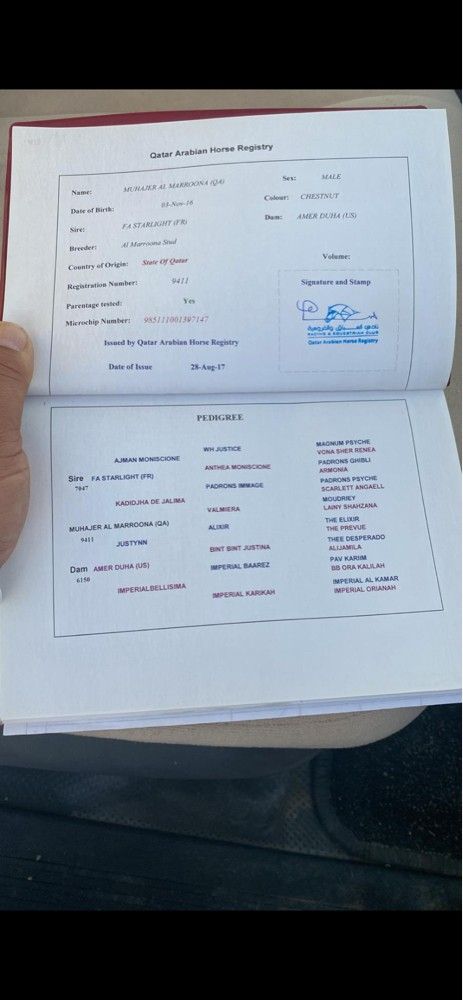 Qatar Arabian Horse Registry
Name: MUHAJER AL MARROONA (QA) Sex: MALE
Date of Birth: 03-Nov-16 Colour: CHESTNUT
Sire: FA STARLIGHT (FR) Dam: AMER DUHA (US)
Breeder: Al Marroona Stud
Country of Origin: State Of Qatar Volume:
Registration Number: 9411 Signature and Stamp
Parentage tested: Yes
Microchip Number: 985111001397147
RACING & EQUESTRIAN CLUB
Qatar Arabian Horse Registry
Issued by Qatar Arabian Horse Registry
Date of Issue 28-Aug-17
PEDIGREE
MAGNUM PSYCHE
WH JUSTICE
VONA SHER RENEA
AJMAN MONISCIONE
PADRONS GHIBLI
ANTHEA MONISCIONE
ARMONIA
Sire FA STARLIGHT (FR)
7047
PADRONS PSYCHE
PADRONS IMMAGE
SCARLETT ANGAELL
KADIDJHA DE JALIMA
MOUDRIEY
VALMIERA
LAINY SHAHZANA
MUHAJER AL MARROONA (QA)
9411
THE ELIXIR
ALIXIR
THE PREVUE
JUSTYNN
THEE DESPERADO
BINT BINT JUSTINA
ALIJAMILA
Dam AMER DUHA (US)
6150
PAV KARIIM
IMPERIAL BAAREZ
BB ORA KALILAH
IMPERIALBELLISIMA
IMPERIAL AL KAMAR
IMPERIAL KARIKAH
IMPERIAL ORIANAH